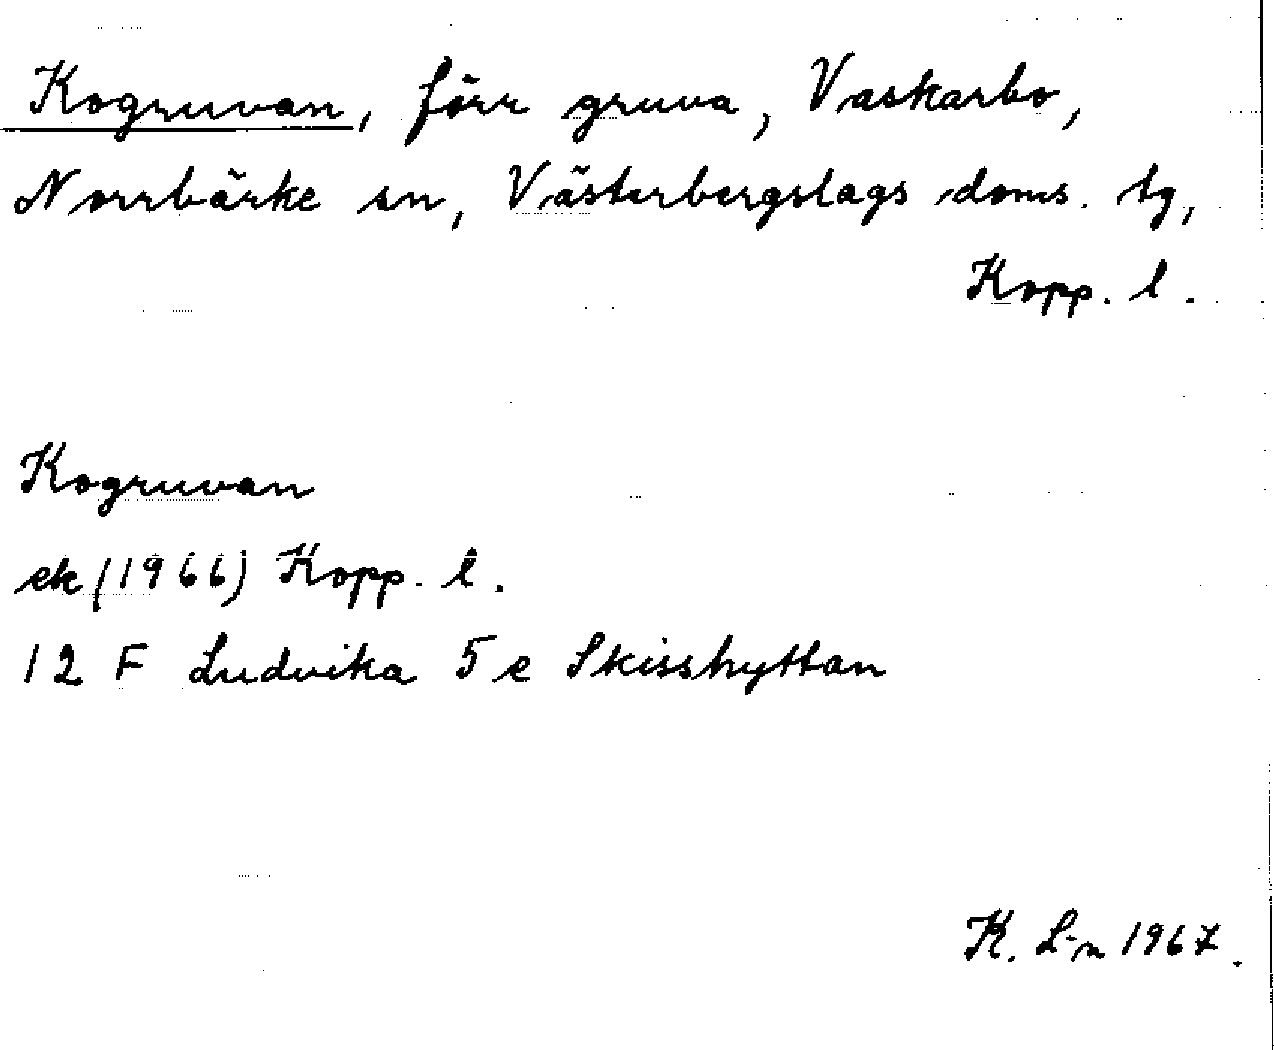 Kogruvan, förr gruva, Vaskarbo,
Norrbärke sn, Västerbergslags doms. tg,
Kopp. l.
Kogruvan
ek (1966) Kopp. l.
12 F Ludvika 5 e Skisshyttan
K. L-n 1967.